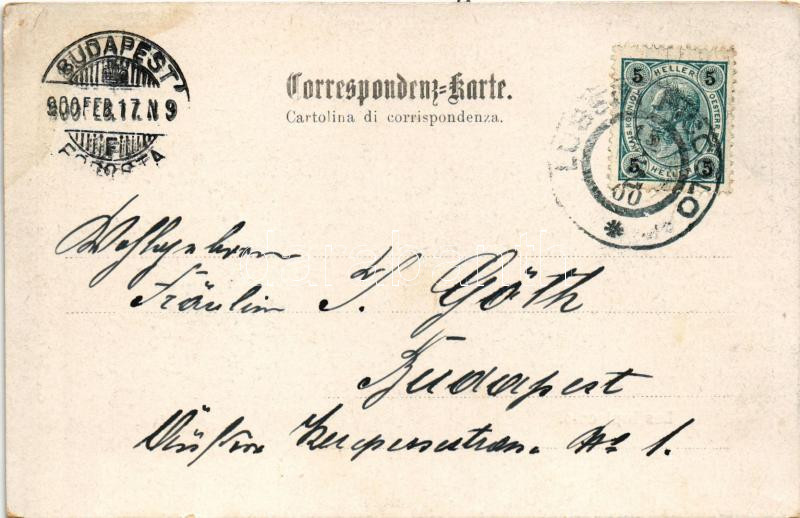 BUDAPEST
900 FEB. 17. N 9
F
Correspondenz=Karte.
Cartolina di corrispondenza.
5 HELLER 5
KAIS. KOENIGL. OESTERR.
5 HELLER 5
LUSSIN PICCOLO
00
Wohlgeboren
Fräulein S. Göth
Budapest
Kerepeserstrasse No 1.